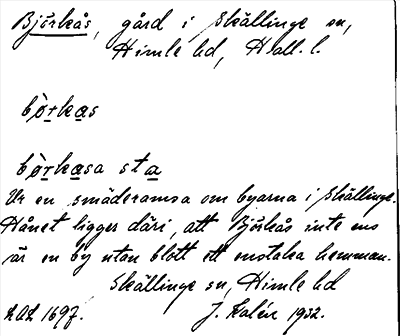 Björkås, gård i Skällinge sn,
Himle hd, Hall. l.
bòrkas
bòrkasa sta
Ur en smäderamsa om byarna i Skällinge.
Hånet ligger däri, att Björkås inte ens
är en by utan blott ett enstaka hemman.
Skällinge sn, Himle hd
LAL 1697. J. Kalén 1932.